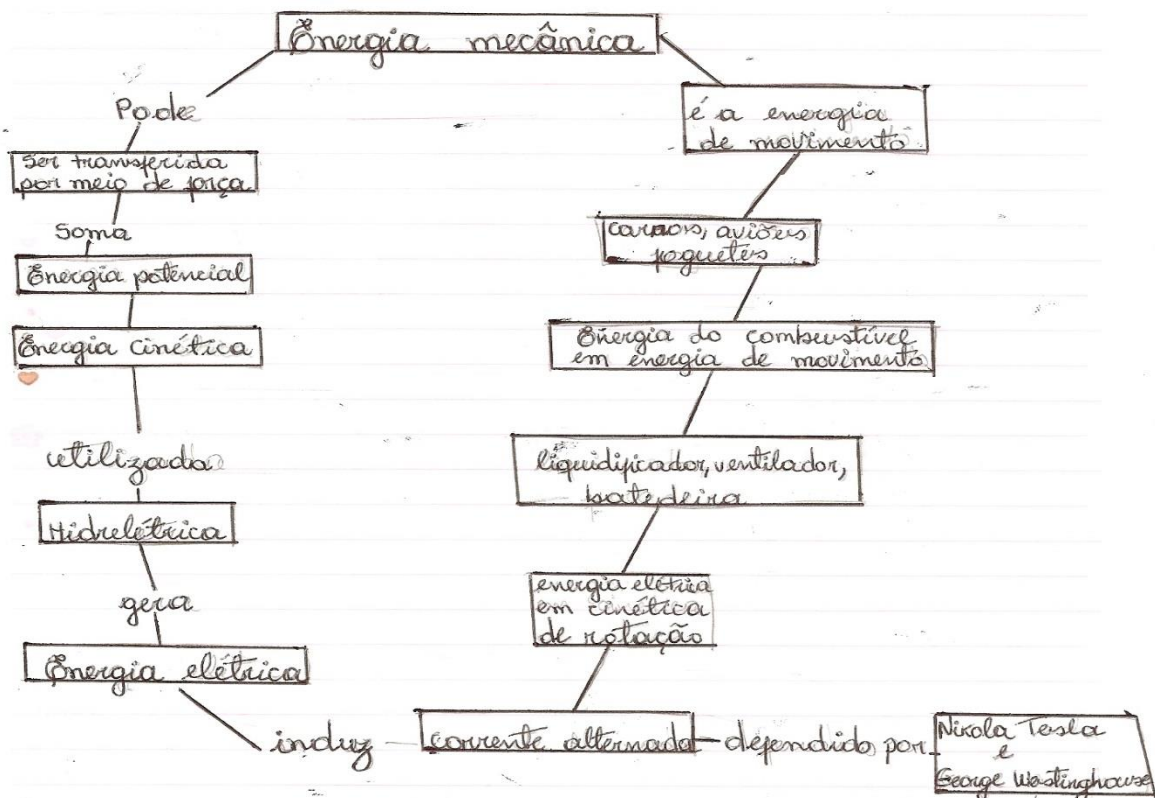 Energia mecânica
Pode
Ser transferida
por meio de força
Soma
Energia potencial
Energia cinética
utilizada
Hidrelétrica
gera
Energia elétrica
induz
é a energia
de movimento
carros, aviões
foguetes
Energia do combustível
em energia de movimento
liquidificador, ventilador,
batedeira
energia elétrica
em cinética
de rotação
corrente alternada
defendido por
Nikola Tesla
e
George Westinghouse